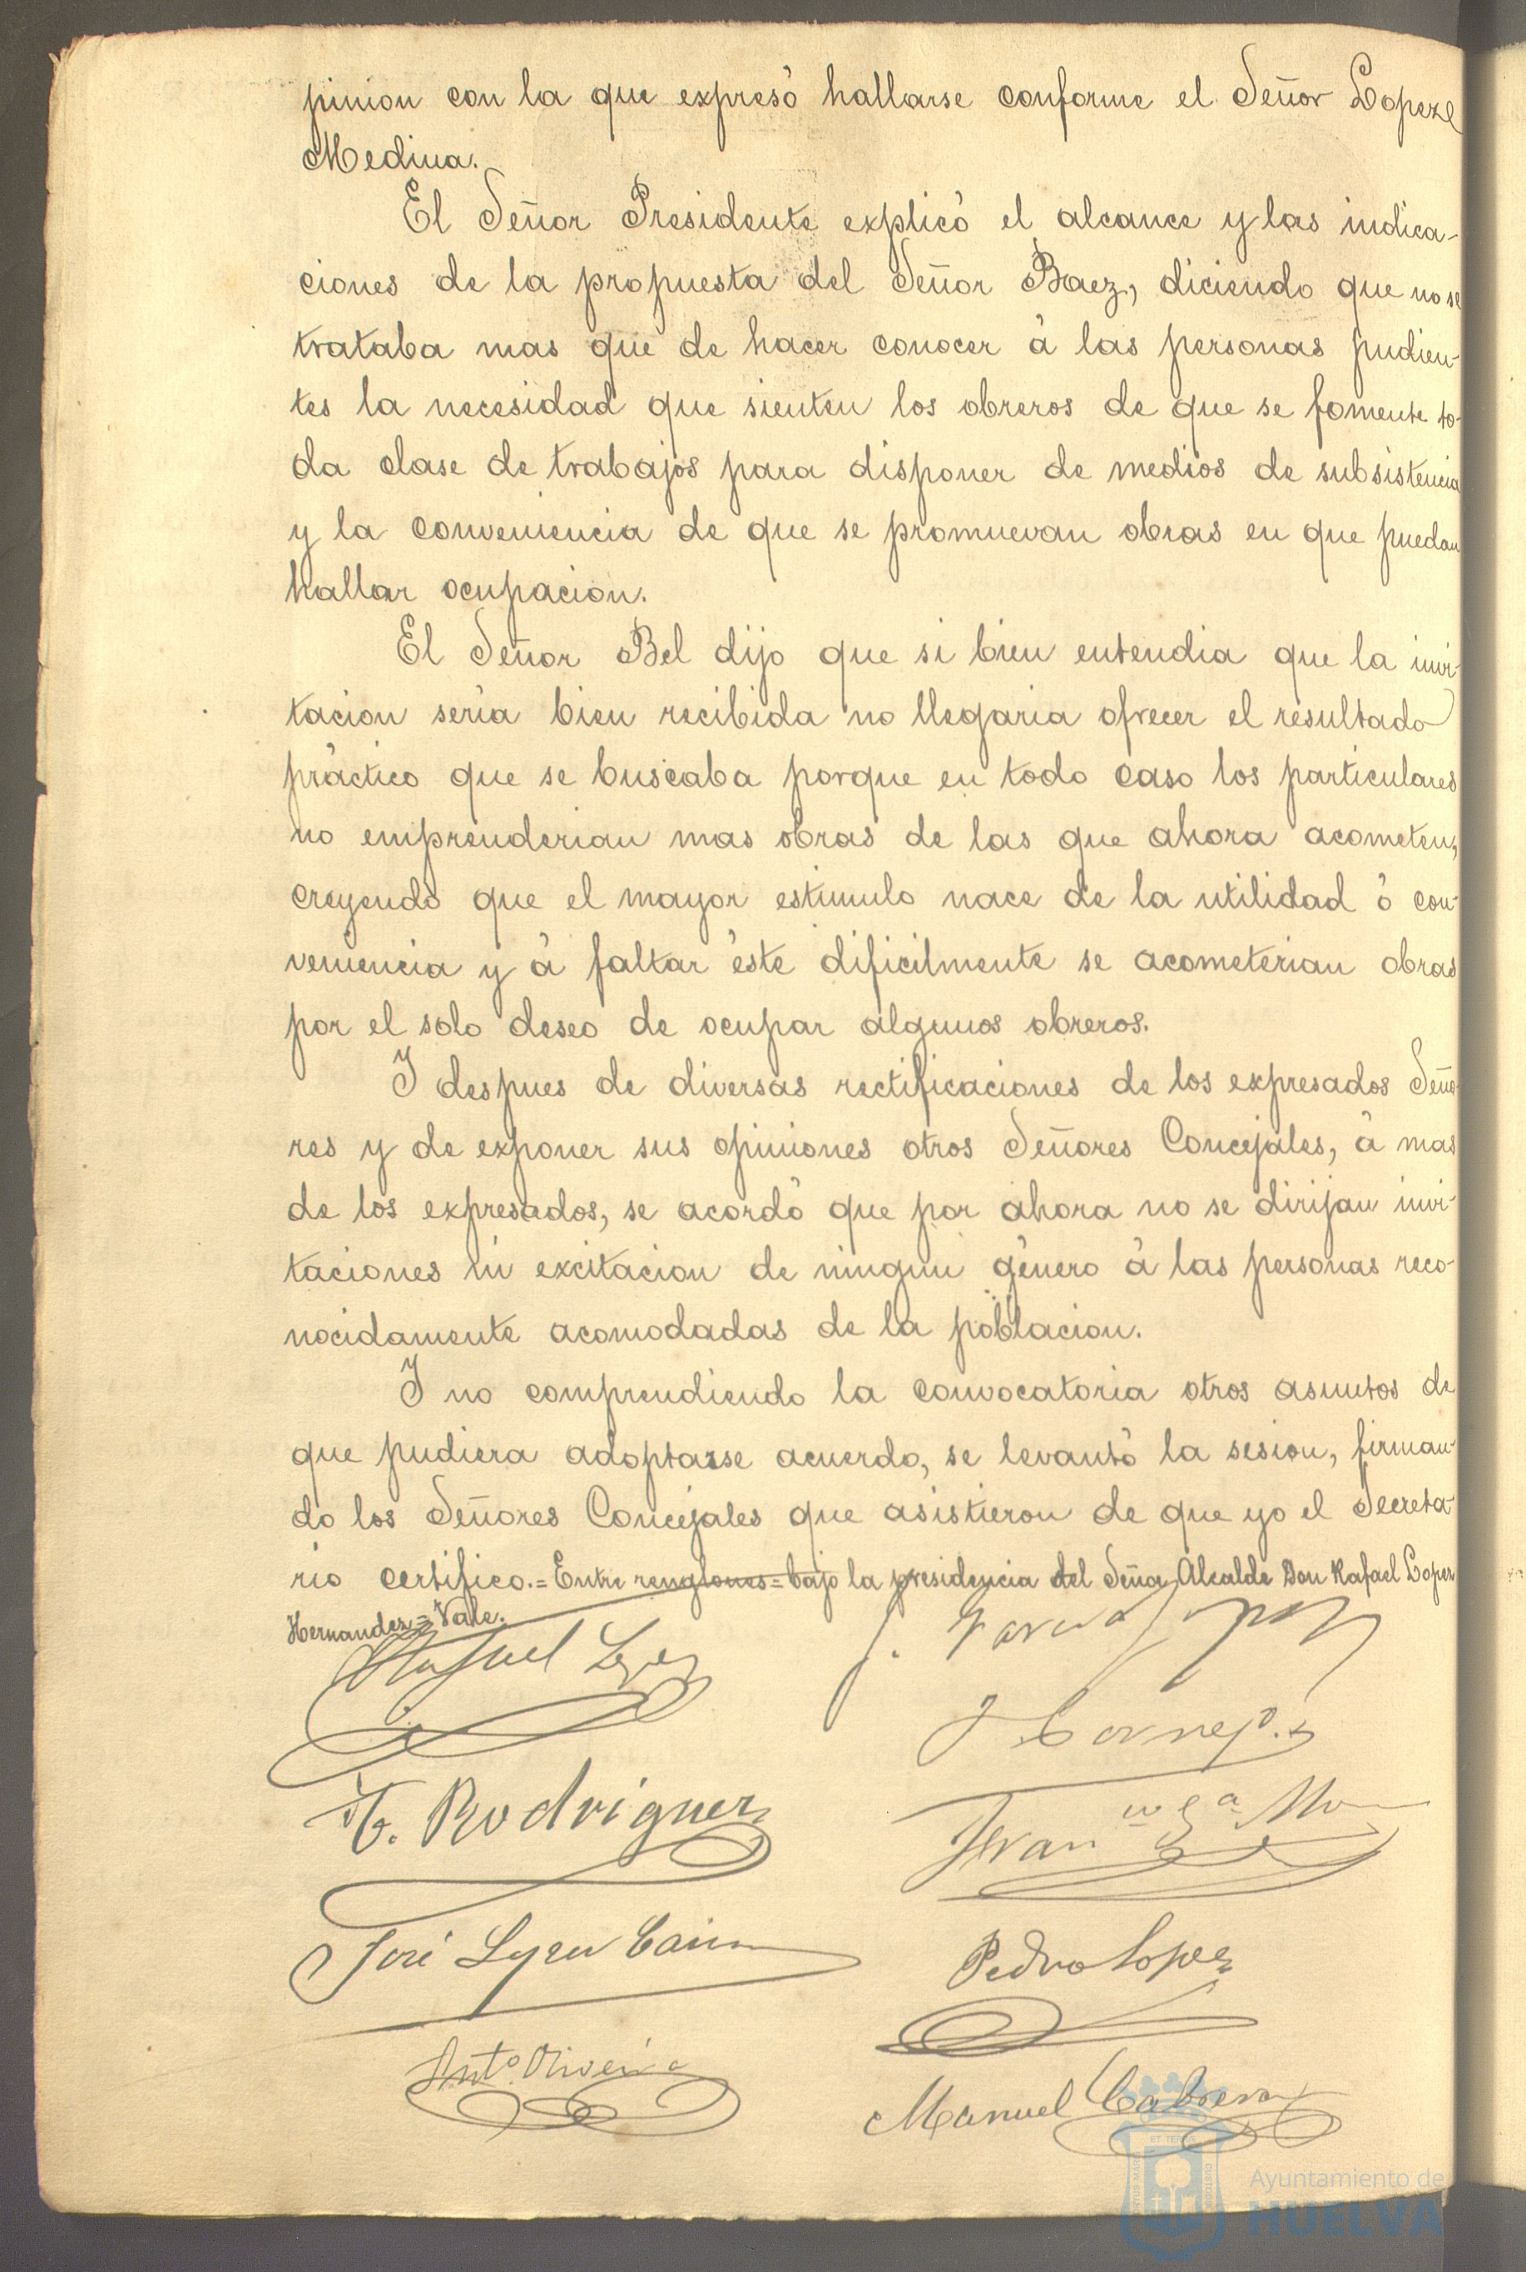 pinion con la que expresó hallarse conforme el Señor Lopez
Medina.
El Señor Presidente explicó el alcance y las indica-
ciones de la propuesta del Señor Baez, diciendo que no se
trataba mas que de hacer conocer á las personas pudien-
tes la necesidad que sienten los obreros de que se fomente to-
da clase de trabajos para disponer de medios de subsistencia
y la conveniencia de que se promuevan obras en que puedan
hallar ocupacion.
El Señor Bel dijo que si bien entendia que la invi-
tacion sería bien recibida no llegaria ofrecer el resultado
práctico que se buscaba porque en todo caso los particulares
no emprenderian mas obras de las que ahora acometen,
creyendo que el mayor estimulo nace de la utilidad ó con-
veniencia y á faltar éste dificilmente se acometerian obras
por el solo deseo de ocupar algunos obreros.
Y despues de diversas rectificaciones de los expresados Seño-
res y de exponer sus opiniones otros Señores Concejales, á mas
de los expresados, se acordó que por ahora no se dirijan invi-
taciones ni excitacion de ningun género á las personas reco-
nocidamente acomodadas de la poblacion.
Y no comprendiendo la convocatoria otros asuntos de
que pudiera adoptarse acuerdo, se levantó la sesion, firman-
do los Señores Concejales que asistieron de que yo el Secreta-
rio certifico.=Entre renglones=bajo la presidencia del Señor Alcalde Don Rafael Lopez
Hernandez=Vale.
Rafael Lopez
J. Garcia Lopez
H. Rodriguez
José Lopez
Pedro Lopez
Antº. Oliveira
Manuel Cabrera
Ayuntamiento de
HUELVA